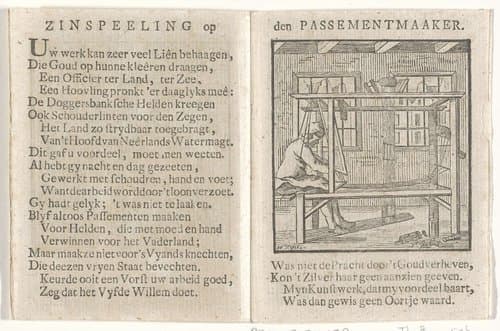 ZINSPEELING op
Uw werk kan zeer veel Liên behaagen,
Die Goud op hunne kleêren draagen,
Een Officier ter Land, ter Zee,
Een Hoovling pronkt 'er daaglyks meê:
De Doggersbanksche Helden kreegen
Ook Schouderlinten voor den Zegen,
Het Land zo strydbaar toegebragt,
Van 't Hoofd van Neêrlands Watermagt.
Dit gaf u voordeel, moet men weeten.
Al hebt gy nacht en dag gezeeten,
Gewerkt met schoudren, hand en voet;
Want de arbeid word door 't loon verzoet.
Gy hadt gelyk; 't was niet te laaken.
Blyf altoos Passementen maaken
Voor Helden, die met moed en hand
Verwinnen voor het Vaderland;
Maar maakze niet voor 's Vyands knechten,
Die deezen vryen Staat bevechten.
Keurde ooit een Vorst uw arbeid goed,
Zeg dat het Vyfde Willem doet.
den PASSEMENTMAAKER.
Was niet de Pracht door 't Goud verheven,
Kon 't Zilver haar geen aanzien geeven.
Myn Kunstwerk, dat my voordeel baart,
Was dan gewis geen Oortje waard.